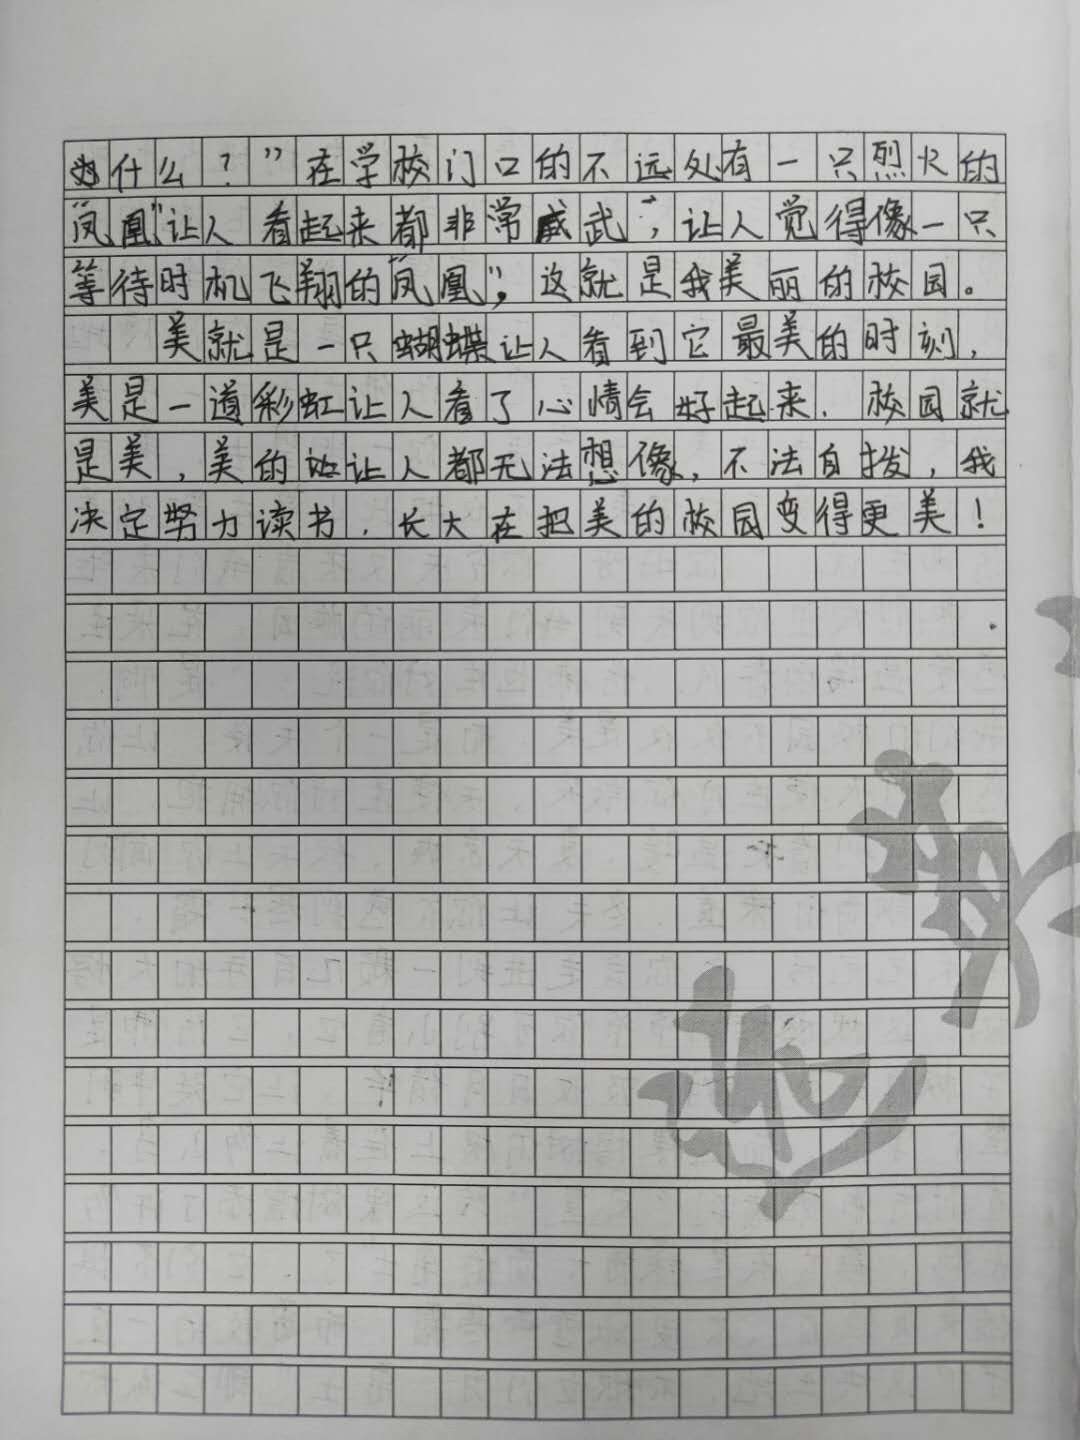 为什么？”在学校门口的不远处有一只烈火的
“凤凰”让人看起来都非常威武，让人觉得像一只
等待时机飞翔的“凤凰”，这就是我美丽的校园。
美就是一只蝴蝶让人看到它最美的时刻，
美是一道彩虹让人看了心情会好起来．校园就
是美，美的让人都无法想像，不法自拨，我
决定努力读书．长大在把美的校园变得更美！